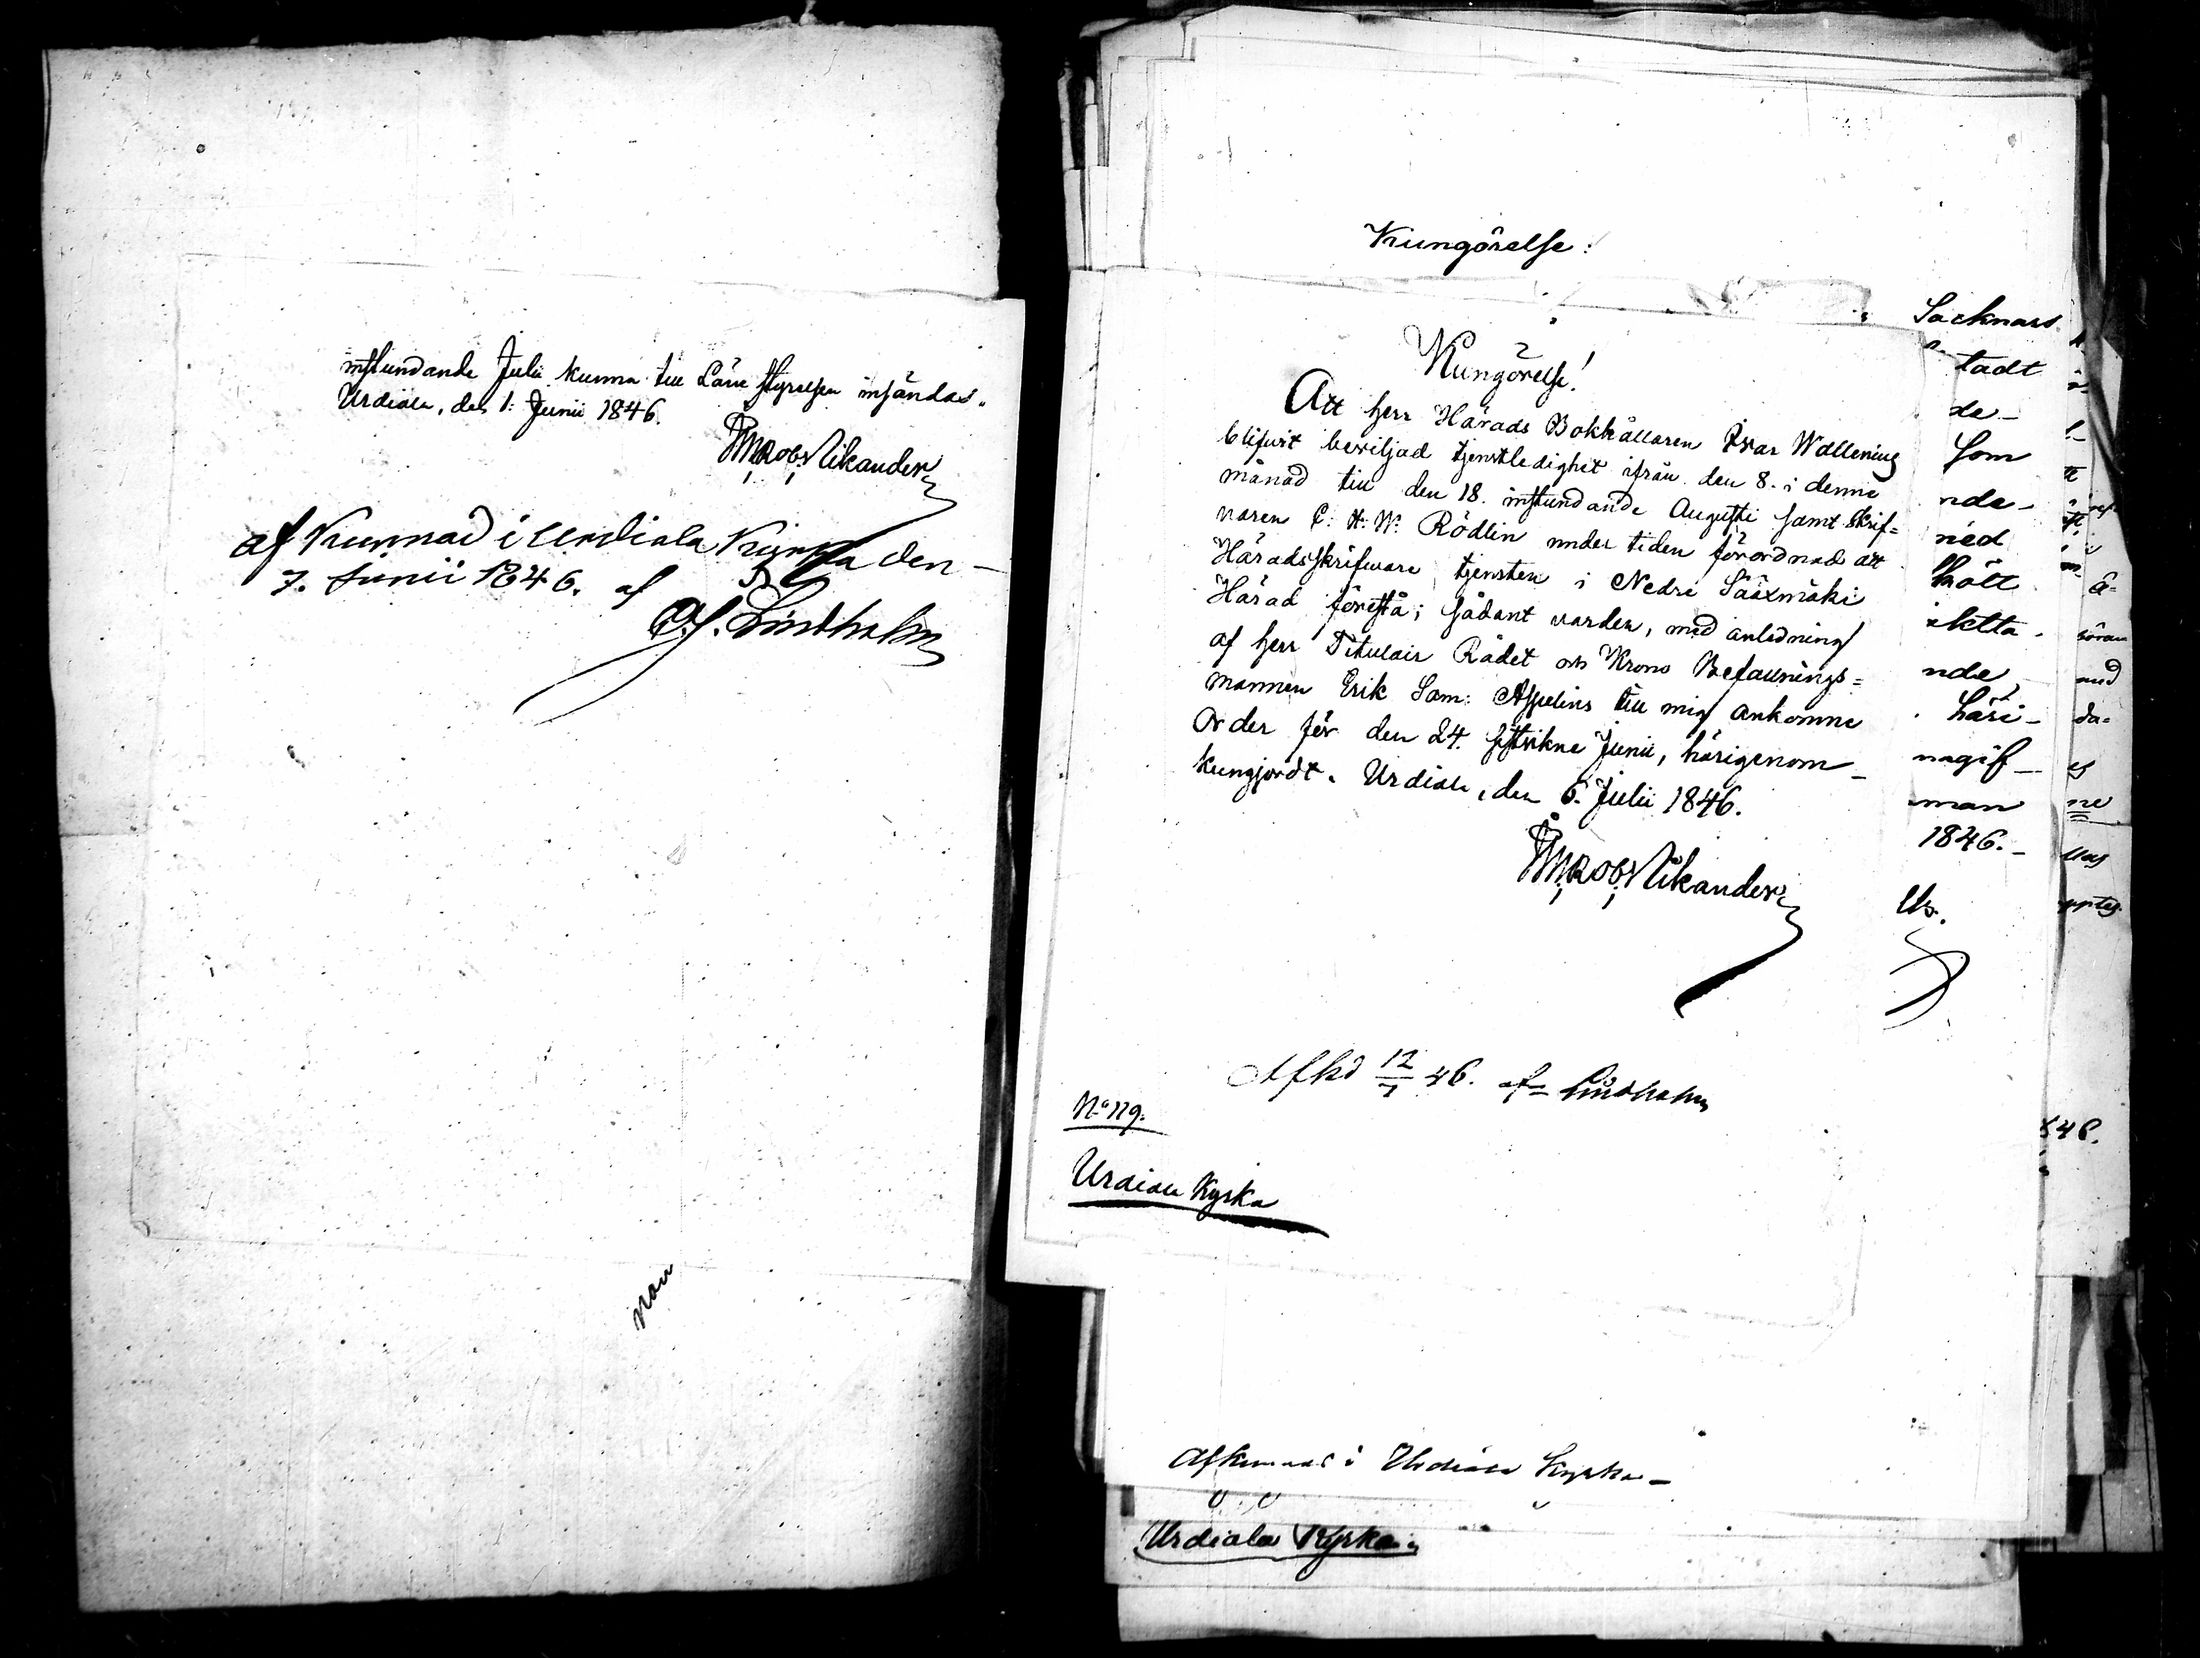 instundande Julii kunna till Läne styrelsen insändas.
Urdiala, den 1. Junii 1846.
Rob. Nikander
af Kunnad i Urdiala Kyrka den
7. Junii 1846. af
Lindholm
nau
Kungörelse:
Kungörelse!
Att herr Härads Bokhållaren Ivar Wallenius
blifwit beviljad tjenstledighet ifrån den 8. i denne
månad till den 18. instundande Augusti samt Skrif=
varen C. H. W. Rödlin under tiden förordnad att
Häradsskrifware tjensten i Nedre Sääxmäki
Härad förestå; sådant varder, med anledning
af herr Titulair Rådet och Krono Befallnings=
mannen Erik Sam: Aspelins till mig ankomne
Order för den 24. sistvikne Junii, härigenom
kungjordt. Urdiala, den 6. Julii 1846.
Rob. Nikander
Afkd 12/7 46. af Lindholm
No 119.
Urdiala Kyrka
Sacknass
tadt
de
Som
nde
ned
hött
iktta
nde
häri
nagif
man
1846.
846.
Afkunnad i Urdiala Kyrka
Urdiala Kyrka